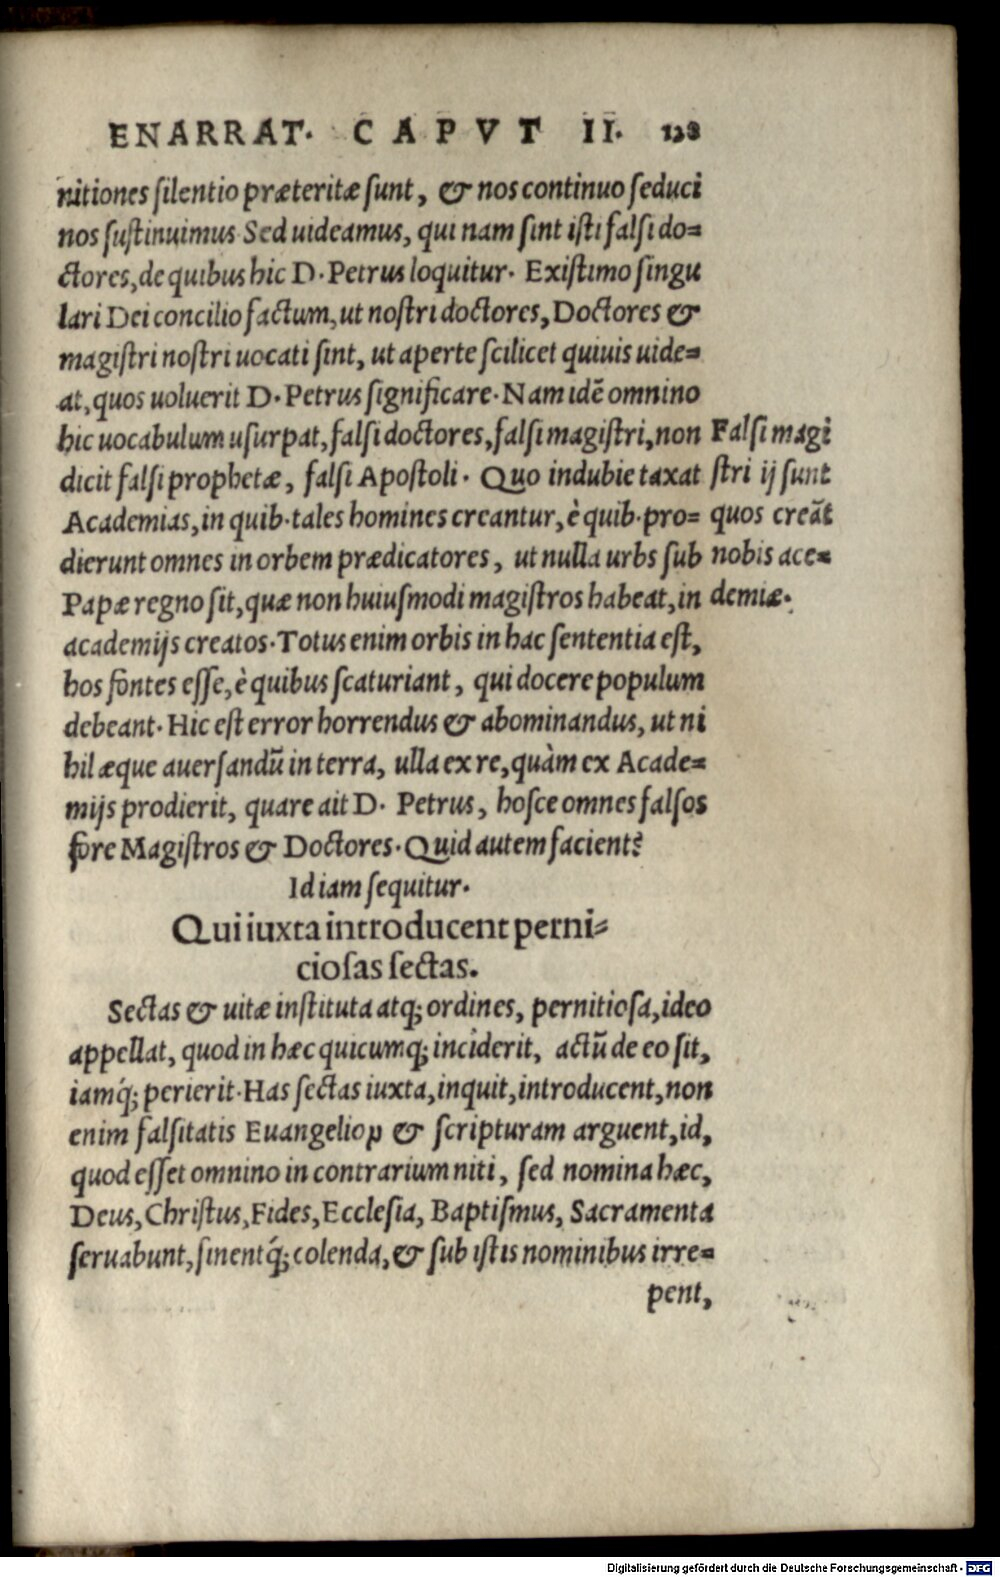 ENARRAT. CAPVT II. 128
nitiones silentio præteritæ sunt, & nos continuo seduci
nos sustinuimus Sed uideamus, qui nam sint isti falsi do=
ctores, de quibus hic D. Petrus loquitur. Existimo singu
lari Dei concilio factum, ut nostri doctores, Doctores &
magistri nostri uocati sint, ut aperte scilicet quiuis uide=
at, quos uoluerit D. Petrus significare. Nam idē omnino
hic uocabulum usurpat, falsi doctores, falsi magistri, non
dicit falsi prophetæ, falsi Apostoli. Quo indubie taxat
Academias, in quib. tales homines creantur, è quib. pro=
dierunt omnes in orbem prædicatores, ut nulla urbs sub
Papæ regno sit, quæ non huiusmodi magistros habeat, in
academijs creatos. Totus enim orbis in hac sententia est,
hos fontes esse, è quibus scaturiant, qui docere populum
debeant. Hic est error horrendus & abominandus, ut ni
hil æque auersandū in terra, ulla ex re, quàm ex Acade=
mijs prodierit, quare ait D. Petrus, hosce omnes falsos
fore Magistros & Doctores. Quid autem facient?
Id iam sequitur.
Falsi magi
stri ij sunt
quos creāt
nobis ace=
demiæ.
Qui iuxta introducent perni=
ciosas sectas.
Sectas & uitæ instituta atq; ordines, pernitiosa, ideo
appellat, quod in hæc quicumq; inciderit, actū de eo sit,
iamq́; perierit. Has sectas iuxta, inquit, introducent, non
enim falsitatis Euangelioꝝ & scripturam arguent, id,
quod esset omnino in contrarium niti, sed nomina hæc,
Deus, Christus, Fides, Ecclesia, Baptismus, Sacramenta
seruabunt, sinentq́; colenda, & sub istis nominibus irre=
pent,
Digitalisierung gefördert durch die Deutsche Forschungsgemeinschaft - DFG